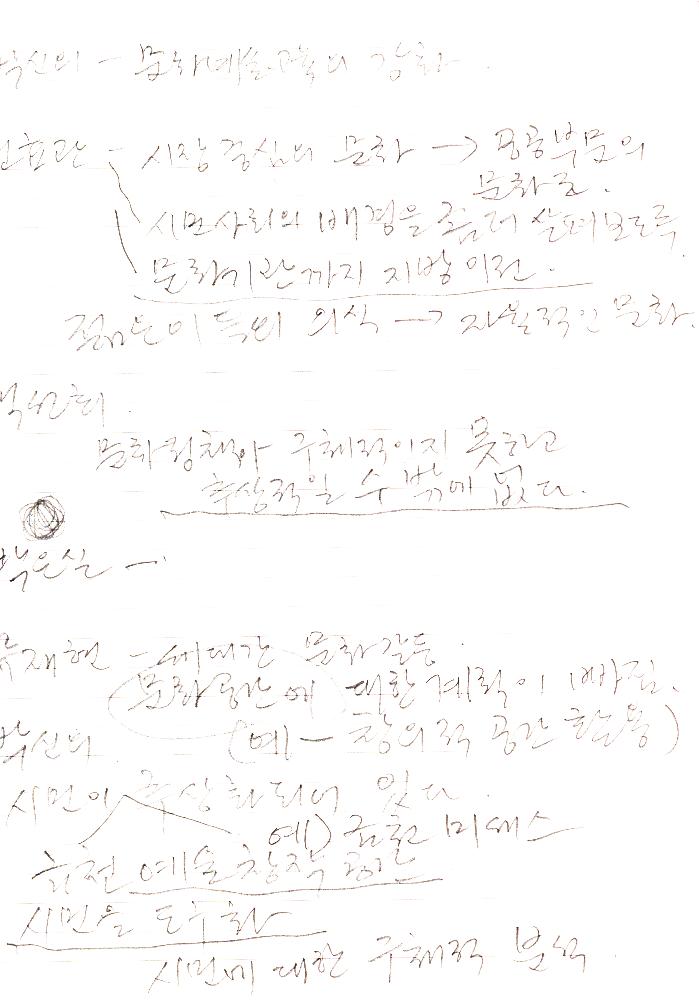 박신의 - 문화예술교육의 강화.
전효관 - 시장중심의 문화 → 공공부문의
문화로.
시민사회의 배경을 좀더 살펴보도록
문화기관까지 지방이전.
젊은이들의 의식 → 자발적인 문화.
문화정책이 구체적이지 못하고
추상적일 수 밖에 없다.
박은실 -
류재현 - 세대간 문화갈등.
문화공간에 대한 계획이 빠짐.
박신의 (예 - 창의적 공간 활용)
시민이 추상화되어 있다.
예) 금천 미세스
금천 예술창작공간
시민을 도구화
시민에 대한 구체적 분석.